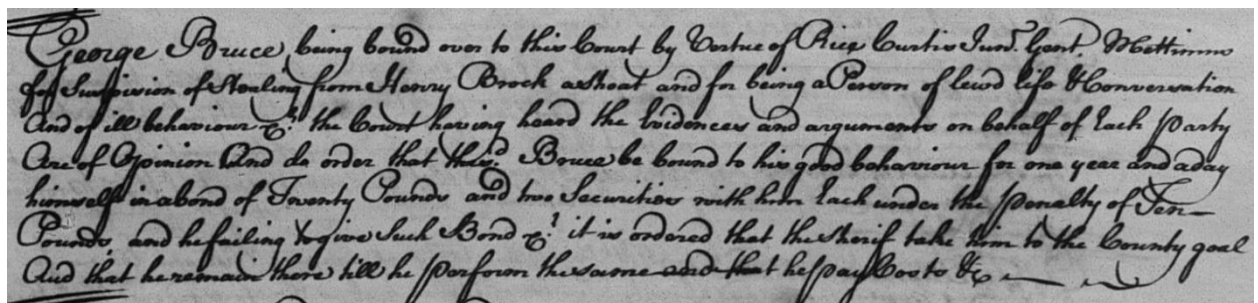 George Bruce being bound over to this Court by Vertue of Rice Curtis Junr. Gent. Mettimus
for Suspission of Stealing from Henry Brock a shoat and for being a Person of lewd life & Conversation
And of ill behaviour &c. the Court having heard the Evidences and arguments on behalf of Each Party
Are of Opinion And do order that the sd. Bruce be bound to his good behaviour for one year and a day
himself in a bond of Twenty Pounds and two Securities with him Each under the Penalty of Ten
Pounds, and he failing to give Such Bond &c. it is ordered that the Sherif take him to the County goal
And that he remain there till he perform the same and that he pay Costs &c